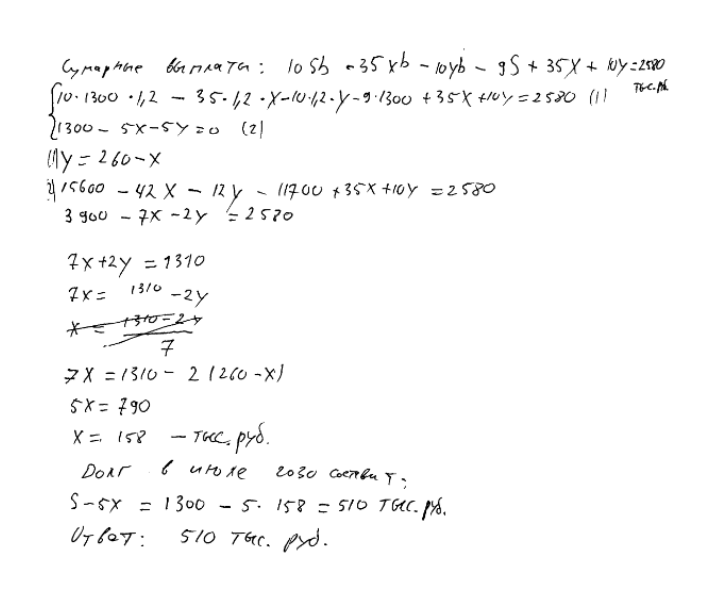 Сумарные выплаты: 10Sb - 35xb - 10yb - 9S + 35x + 10y = 2580 тыс. руб
{ 10·1300·1,2 - 35·1,2·x - 10·1,2·y - 9·1300 + 35x + 10y = 2580 (1)
{ 1300 - 5x - 5y = 0 (2)
(1) y = 260 - x
2) 15600 - 42x - 12y - 11700 + 35x + 10y = 2580
3900 - 7x - 2y = 2580
7x + 2y = 1310
7x = 1310 - 2y
x = 1310 - 2y / 7
7x = 1310 - 2(260 - x)
5x = 790
x = 158 - тыс. руб.
Долг в июле 2030 составит:
S - 5x = 1300 - 5·158 = 510 тыс. руб.
Ответ: 510 тыс. руб.